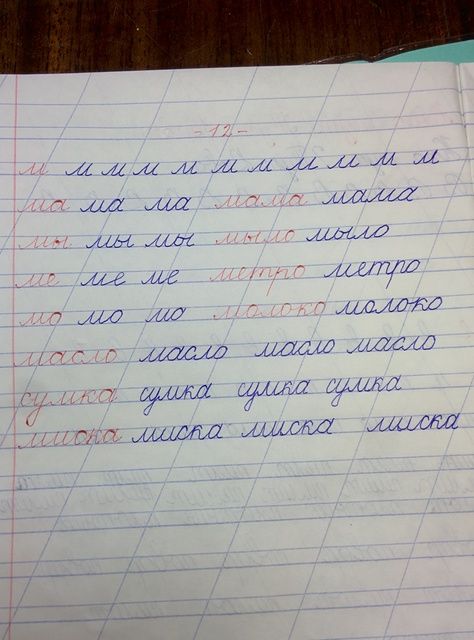 -12-
м м м м м м м м м м м
ма ма ма мама мама
мы мы мы мыло мыло
ме ме ме метро метро
мо мо ма молоко молоко
масло масло масло масло
сумка сумка сумка сумка
миска миска миска миска